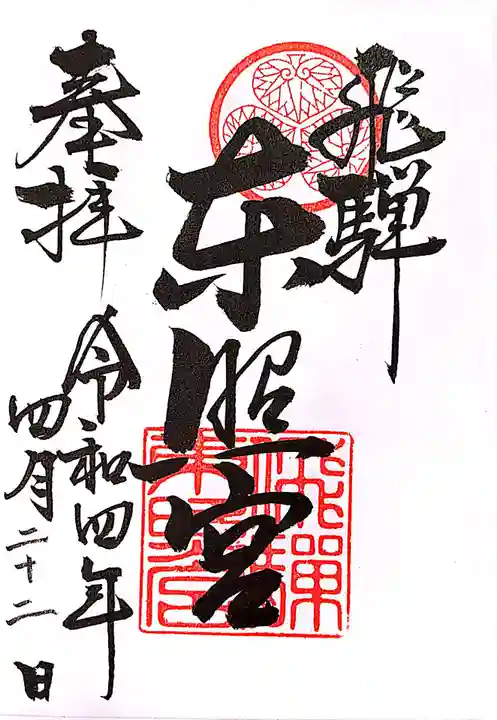 飛騨
東照宮
奉拝
令和四年
四月二十二日
飛騨
東照宮